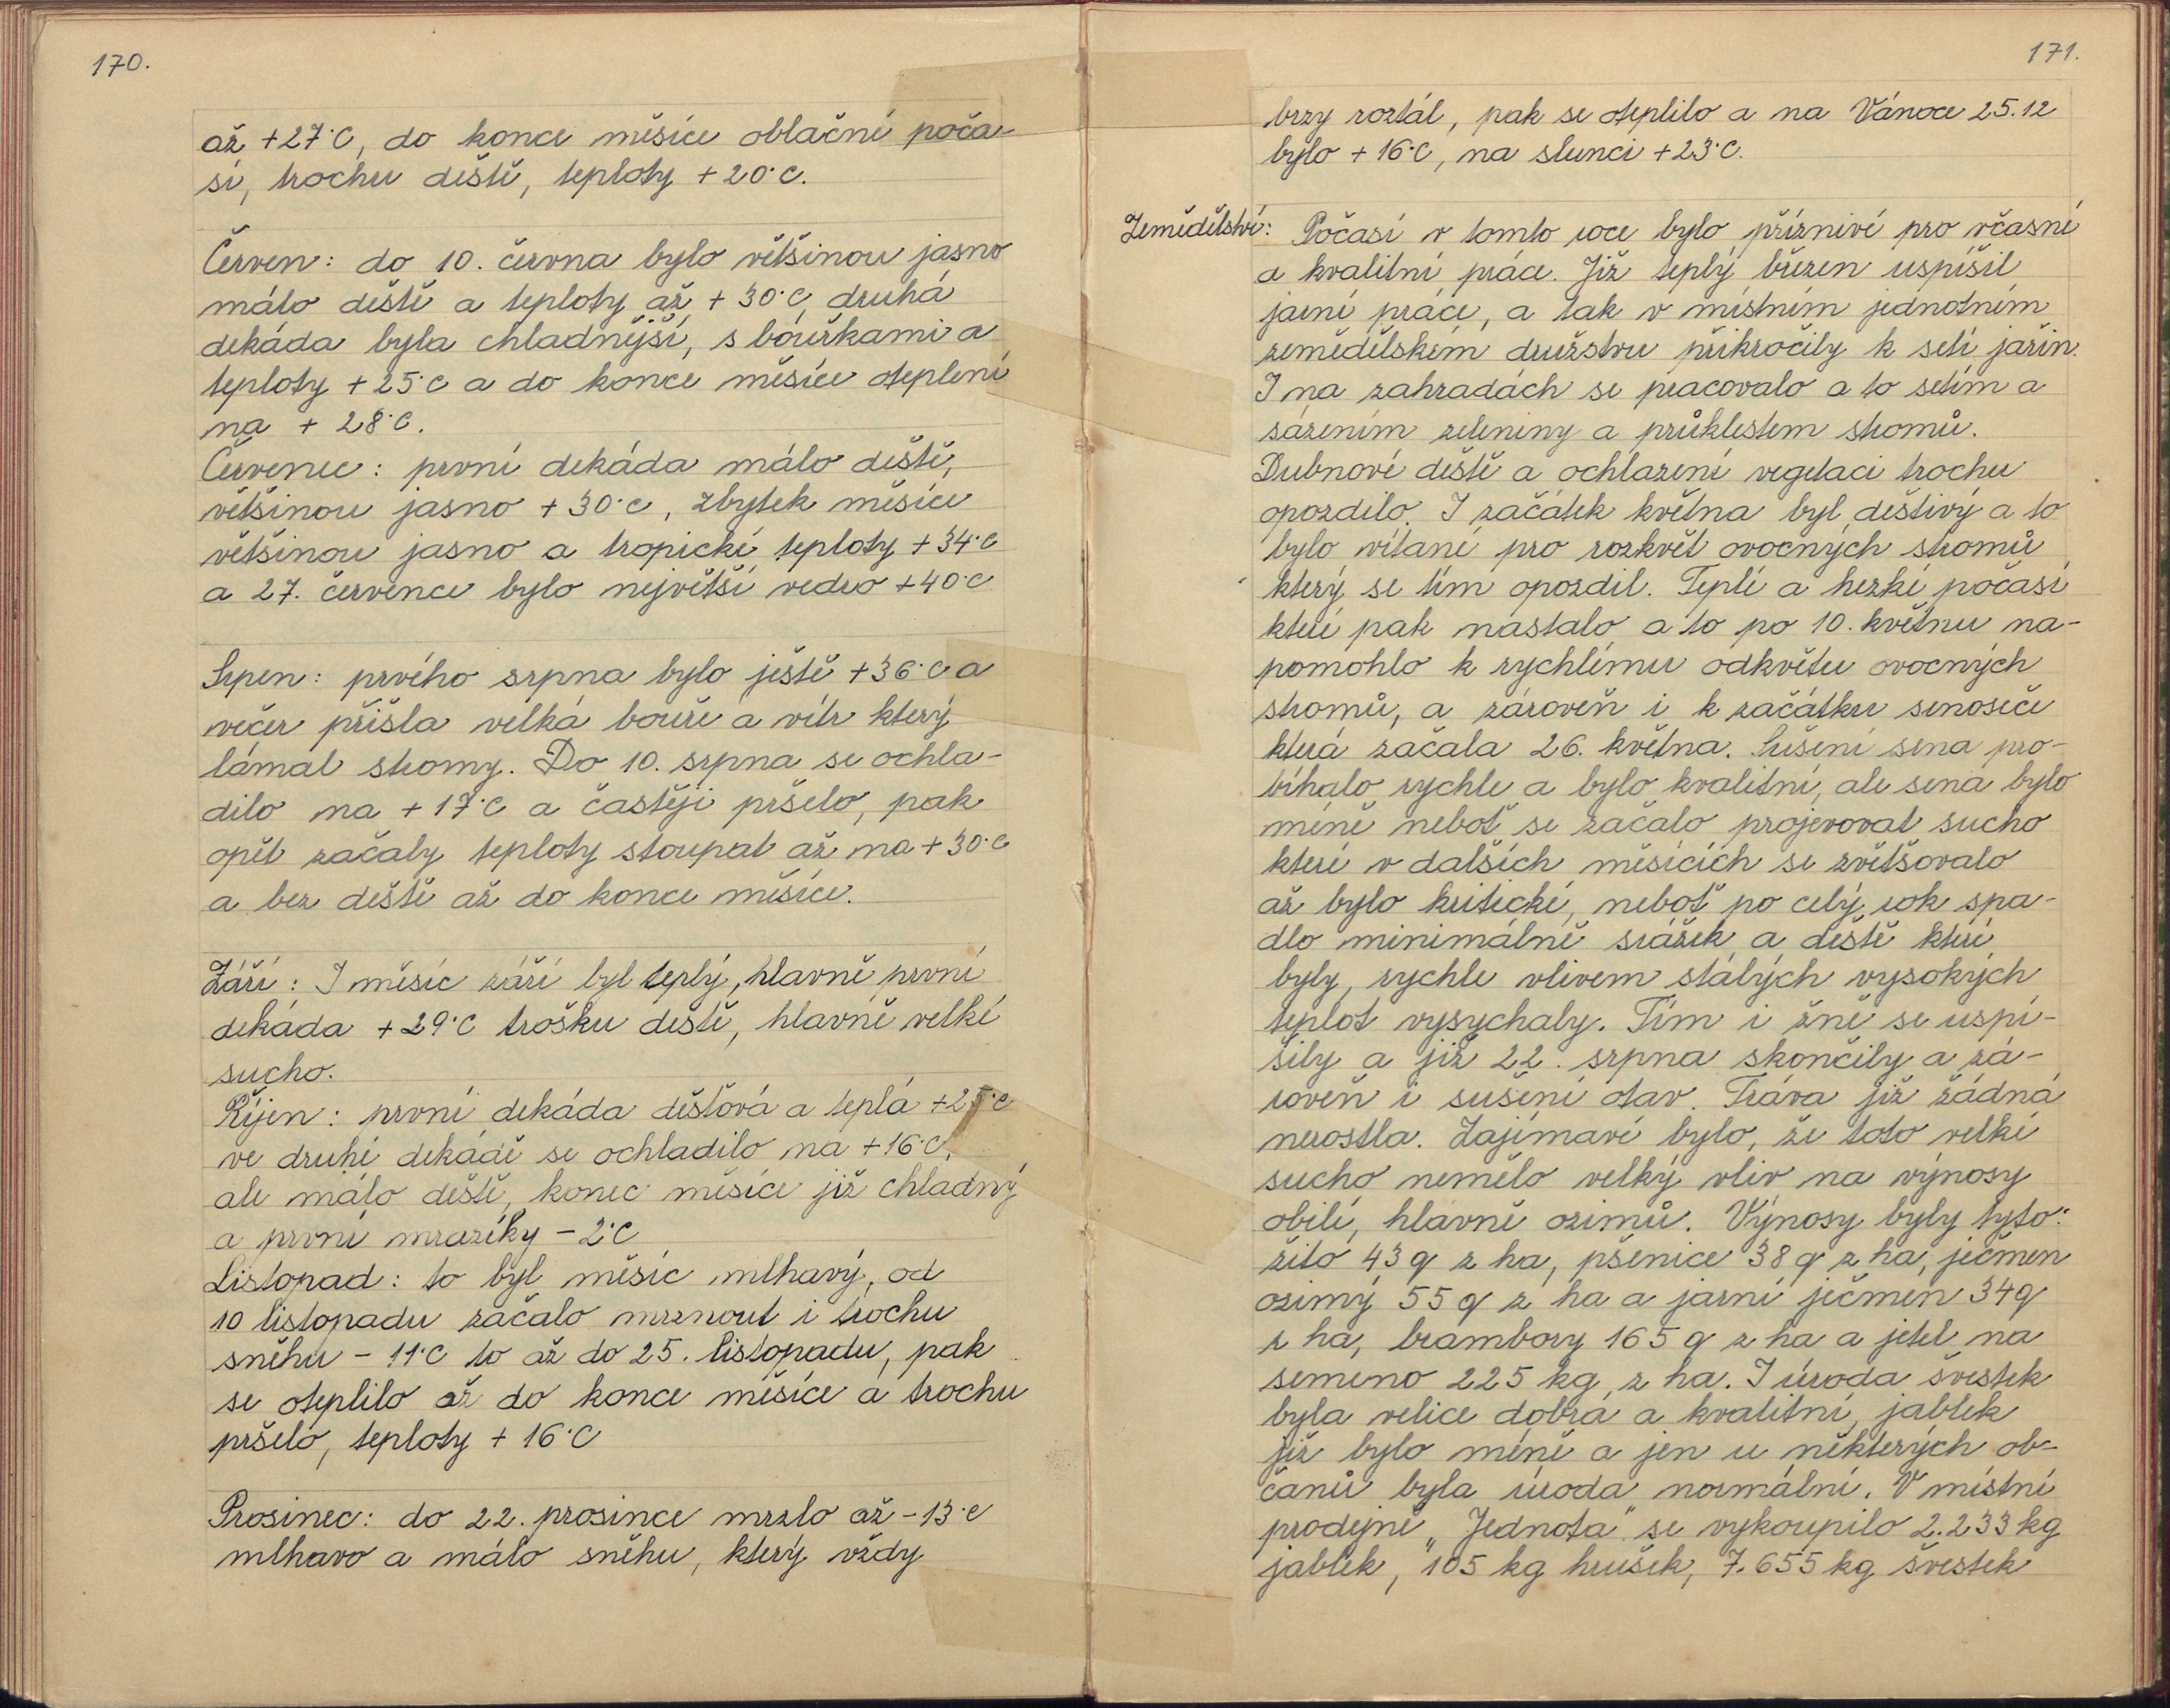 170.
až +27°C, do konce měsíce oblačné poča-
sí, trochu deště, teploty +20°C.
Červen: do 10. června bylo většinou jasno
málo deště a teploty až +30°C, druhá
dekáda byla chladnější, s bouřkami a
teploty +25°C a do konce měsíce oteplení
na +28°C.
Červenec: první dekáda málo deště,
většinou jasno +30°C, zbytek měsíce
většinou jasno a tropické teploty +34°C
a 27. července bylo největší vedro +40°C
Srpen: prvého srpna bylo ještě +36°C a
večer přišla velká bouře a vítr který
lámal stromy. Do 10. srpna se ochla-
dilo na +17°C a častěji pršelo, pak
opět začaly teploty stoupat až na +30°C
a bez deště až do konce měsíce.
Září: I měsíc září byl teplý, hlavně první
dekáda +29°C trošku deště, hlavně velké
sucho.
Říjen: první dekáda dešťová a teplá +25°C
ve druhé dekádě se ochladilo na +16°C,
ale málo deště, konec měsíce již chladný
a první mrazíky -2°C
Listopad: to byl měsíc mlhavý, od
10 listopadu začalo mrznout i trochu
sněhu -11°C to až do 25. listopadu, pak
se oteplilo až do konce měsíce a trochu
pršelo, teploty +16°C
Prosinec: do 22. prosince mrzlo až -13°C
mlhavo a málo sněhu, který vždy
171.
brzy roztál, pak se oteplilo a na Vánoce 25.12
bylo +16°C, na slunci +23°C.
Zemědělství: Počasí v tomto roce bylo příznivé pro včasné
a kvalitní práce. Již teplý březen uspíšil
jarní práce, a tak v místním jednotném
zemědělském družstvu přikročily k setí jařin.
I na zahradách se pracovalo a to setím a
sázením zeleniny a průklestem stromů.
Dubnové deště a ochlazení vegetaci trochu
opozdilo. I začátek května byl deštivý a to
bylo vítané pro rozkvět ovocných stromů
který se tím opozdil. Teplé a hezké počasí
které pak nastalo a to po 10. květnu na-
pomohlo k rychlému odkvětu ovocných
stromů, a zároveň i k začátku senoseče
která začala 26. května. Sušení sena pro-
bíhalo rychle a bylo kvalitní, ale sena bylo
méně neboť se začalo projevovat sucho
které v dalších měsících se zvětšovalo
až bylo kritické, neboť po celý rok spa-
dlo minimálně srážek a deště které
byly, rychle vlivem stálých vysokých
teplot vysychaly. Tím i žně se uspí-
šily a již 22. srpna skončily a zá-
roveň i sušení otav. Tráva již žádná
nerostla. Zajímavé bylo, že toto velké
sucho nemělo velký vliv na výnosy
obilí, hlavně ozimů. Výnosy byly tyto:
žito 43 q z ha, pšenice 38 q z ha, ječmen
ozimý 55 q z ha a jarní ječmen 34 q
z ha, brambory 165 q z ha a jetel na
semeno 225 kg z ha. I úroda švestek
byla velice dobrá a kvalitní, jablek
již bylo méně a jen u některých ob-
čanů byla úroda normální. V místní
prodejně „Jednota" se vykoupilo 2.233 kg
jablek, 105 kg hrušek, 7.655 kg švestek